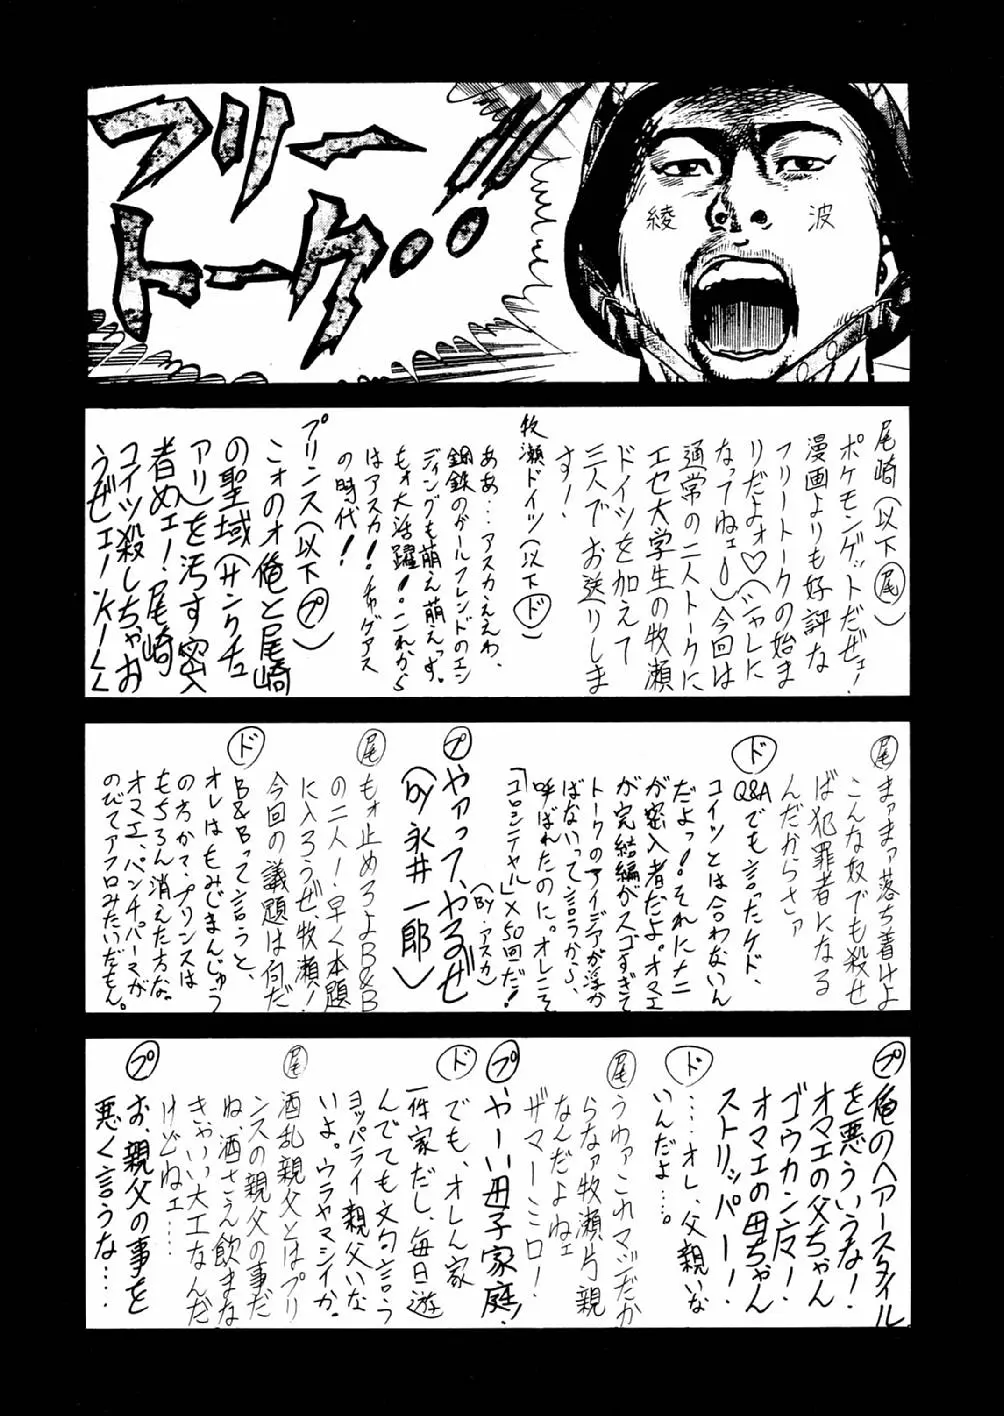 フリー
トーク・・!!
綾波
尾崎(以下尾)
ポケモンゲットだぜェ!
漫画よりも好評な
フリートークの始ま
りだよォ♡(シャレに
なってねェ!)今回は
通常の二人トークに
エセ大学生の牧瀬
ドイツを加えて
三人でお送りしま
す!
牧瀬ドイツ(以下ド)
ああ…アスカええわ、
鋼鉄のガールフレンドのエン
ディングも萌え萌えっす。
もォ大活躍!これから
はアスカ!チャゲアス
の時代!
プリンス(以下プ)
こォのォ俺と尾崎
の聖域(サンクチュ
アリ)を汚す密入
者めェ!尾崎
コイツ殺しちゃお
うぜェー
尾
まァまァ落ち着けよ
こんな奴でも殺せ
ば犯罪者になる
んだからさァ
ド
Q&Aでも言ったケド、
コイツとは合わないん
だよっ!それにナニ
が密入者だよ。オマエ
が完結編がスゴすぎて
トークのアイデアが浮か
ばないって言うから、
呼ばれたのに。オレにそ
「コロシテヤル」×50回だ!
(Byアスカ)
プ
やァって、やるぜ
(by永井一郎)
尾
もォ止めろよB&B
の二人!早く本題
に入ろうぜ、牧瀬!
今回の議題は何だ
ド
B&Bって言うと、
オレはもみじまんじゅう
の方かで、プリンスは
もちろん消えた方だな。
オマエ、パンチパーマが
のびてアフロみたいだもん。
プ
俺のヘアースタイル
を悪ういうな!
オマエの父ちゃん
ゴウカン魔!
オマエの母ちゃん
ストリッパー!
ド
‥‥オレ、父親いな
いんだよ…。
尾
うわァこれマジだか
らなァ牧瀬片親
なんだよねェ
ザマーミロ!
プ
やーい母子家庭!
ド
でも、オレん家
一件家だし、毎日遊
んでても文句言う
ヨッパライ親父いな
いよ。ウラヤマシイか。
尾
酒乱親父とはプリ
ンスの親父の事だ
ね、酒さえん飲まな
きゃいい大工なんだ
けどねェ……
プ
お、親父の事を
悪く言うな‥‥